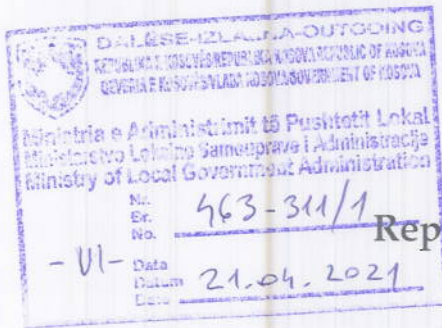 DALËSE-IZLAZNA-OUTGOING
REPUBLIKA E KOSOVËS/REPUBLIKA KOSOVA/REPUBLIC OF KOSOVA
QEVERIA E KOSOVËS/VLADA KOSOVA/GOVERNMENT OF KOSOVA
Ministria e Administrimit të Pushtetit Lokal
Ministarstvo Lokalne Samouprave i Administracije
Ministry of Local Government Administration
Nr.
Br.
No. 463-311/1
Rep
- VI - Data
Datum 21.04.2021
Date